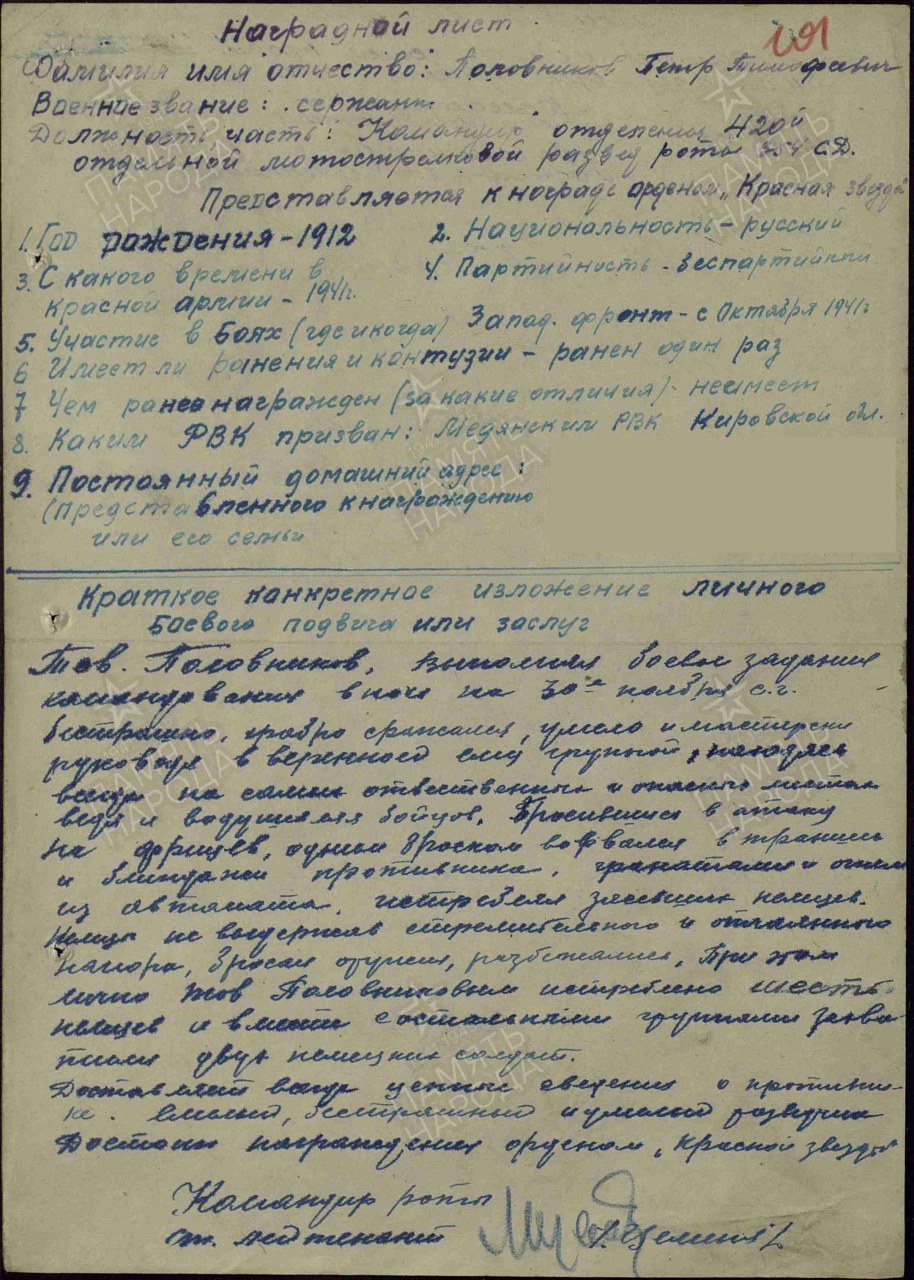 Наградной лист
101
Фамилия имя отчество: Половников Петр Тимофеевич
Военное звание: сержант
Должность часть: Командир отделения 420й
отдельной мотострелковой развед роты СД.
Представляется к награде орденом "Красная звезда"
1. Год раждения - 1912
2. Национальность - русский
3. С какого времени в
красной армии - 1941г.
4. Партийность - беспартийный
5. Участие в боях (где и когда) Запад. фронт - с Октября 1941г
6 Имеет ли ранения и контузии - ранен один раз
7 Чем ранее награжден (за какие отличия) - неимеет
8. Каким РВК призван: Медянским РВК Кировской обл.
9. Постоянный домашний адрес:
(представленного к награждению
или его семьи
Краткое конкретное изложение личного
боевого подвига или заслуг
Тов. Половников, выполняя боевое задание
командования в ночь на 30е ноября с.г.
бесстрашно, храбро сражался, умело и мастерски
руководя вверенной ему группой, находясь
всегда на самых ответственных и опасных местах
ведя и водушевляя бойцов. Бросившись в атаку
на фрицев, одним броском ворвался в траншеи
и блиндажи противника, гранатами и огнем
из автомата, истребляя засевших немцев.
Немцы не выдержав стремительного и отчаянного
напора, бросая оружия, разбежались. При этом
лично тов Половниковым истреблено шесть
немцев и вместе с остальными группами захва-
тили двух немецких солдат.
Доставляет всегда ценные сведения о противни-
ке. Смелый, бесстрашный и умелый разведчик
Достоин награждения орденом "Красной звезды"
Командир роты
ст. лейтенант
ПАМЯТЬ
НАРОДА
ПАМЯТЬ
НАРОДА
ПАМЯТЬ
НАРОДА
ПАМЯТЬ
НАРОДА
ПАМЯТЬ
НАРОДА
ПАМЯТЬ
НАРОДА